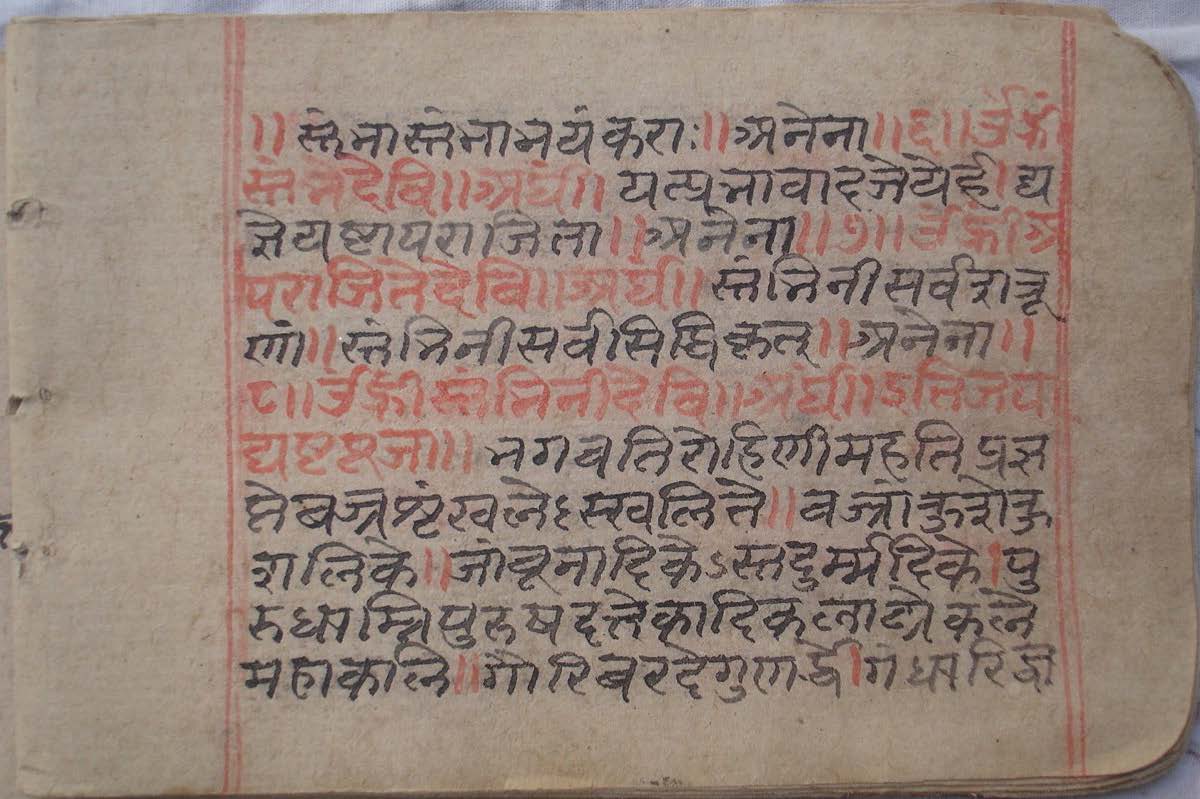 ।। स्तंनास्तंनाभयंकराः ।। अनेना ।। ६ ।। ॐ ह्रीं
स्तंनेदेवि ।। अर्घं ।। यत्पूजावादजेयेर्हा द्य
ज्ञैयष्टापराजिता ।। अनेना ।। ७ ।। ॐ ह्रीं अ
पराजितेदेवि ।। अर्घं ।। स्तंभिनीसर्वशत्रू
णां ।। स्तंभिनीसर्वसिद्धिकृत् ।। अनेना ।।
८ ।। ॐ ह्रीं स्तंभिनीदेवि ।। अर्घं ।। इतिजया
द्यष्टपूजा ।। भगवतिरोहिणीमहतिप्रज्ञ
प्तेबज्रशृंखलेऽस्खलिते ।। वज्रांकुशेकु
शलिके ।। जांबूनादिकेऽस्तदुर्म्मदिके । पु
रुधाम्निपुरुषदत्तेकादिकलाढ्येकले
महाकालि ।। गौरिबरदेगुणर्द्धे । गंधारिज्ञे